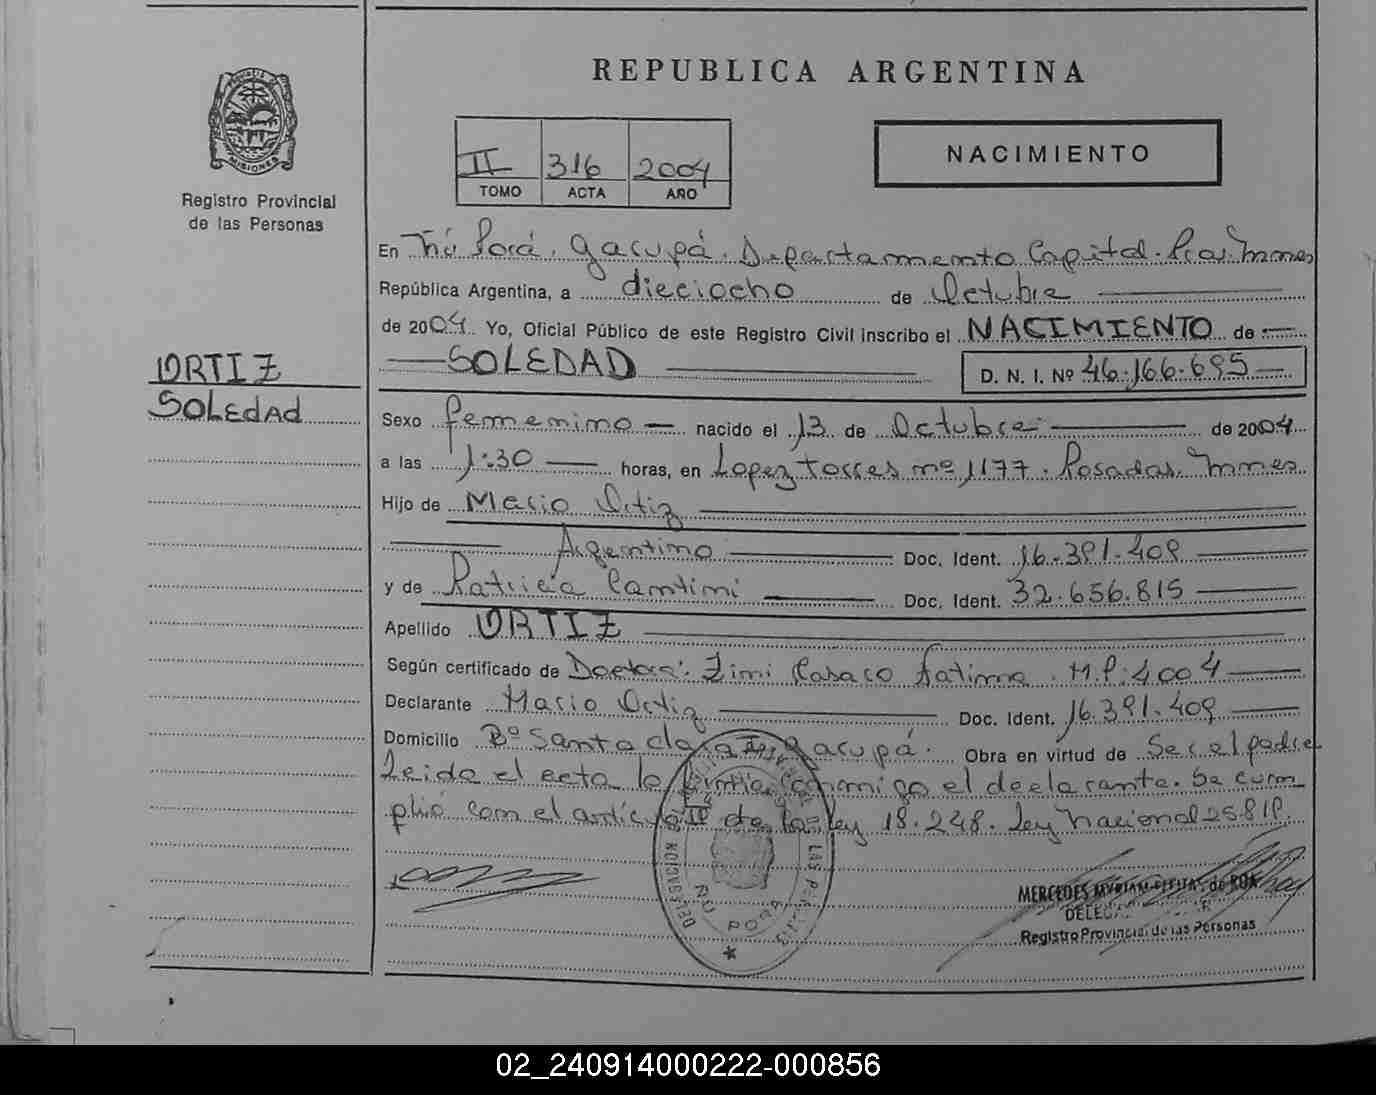 REPUBLICA ARGENTINA
MISIONES
Registro Provincial
de las Personas
II 316 2004
TOMO ACTA AÑO
NACIMIENTO
En Ñú Porá. Garupá. Departamento Capital. Pcia. Mnes
República Argentina, a dieciocho de Octubre
de 2004. Yo, Oficial Público de este Registro Civil inscribo el NACIMIENTO de
SOLEDAD D. N. I. Nº 46.166.695
ORTIZ
SOLEDAD
Sexo femenino nacido el 13 de Octubre de 2004
a las 1:30 horas, en Lopez torres nº 1177. Posadas. Mnes.
Hijo de Mario Ortiz
Argentino Doc. Ident. 16.391.409
y de Patricia Cantini Doc. Ident. 32.656.815
Apellido ORTIZ
Según certificado de Doctora: Zimi Casaco Fatima. M.P. 4004
Declarante Mario Ortiz Doc. Ident. 16.391.409
Domicilio Bº Santa clara II. Garupá. Obra en virtud de Ser el padre
Leida el acta la firma conmigo el declarante. Se cum
plió con el artículo II de la ley 18.248. Ley Nacional 25.819.
DELEGACION ÑU PORA
MERCEDES MYRIAM de ROA
Registro Provincial de las Personas
02_240914000222-000856